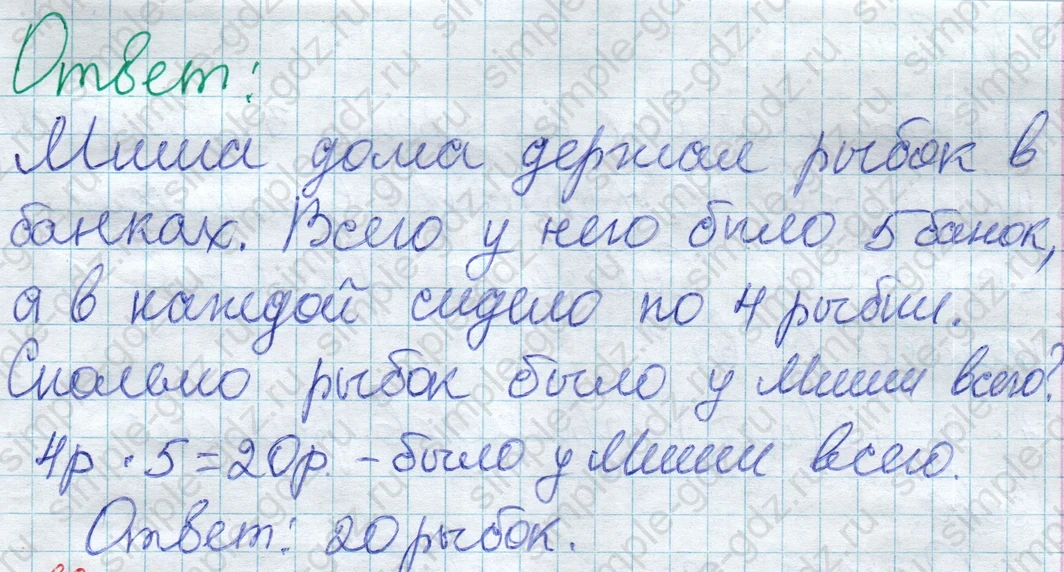 Ответ:
Миша дома держал рыбок в
банках. Всего у него было 5 банок,
а в каждой сидело по 4 рыбки.
Сколько рыбок было у Миши всего?
4р · 5 = 20р. – было у Миши всего.
Ответ: 20 рыбок.